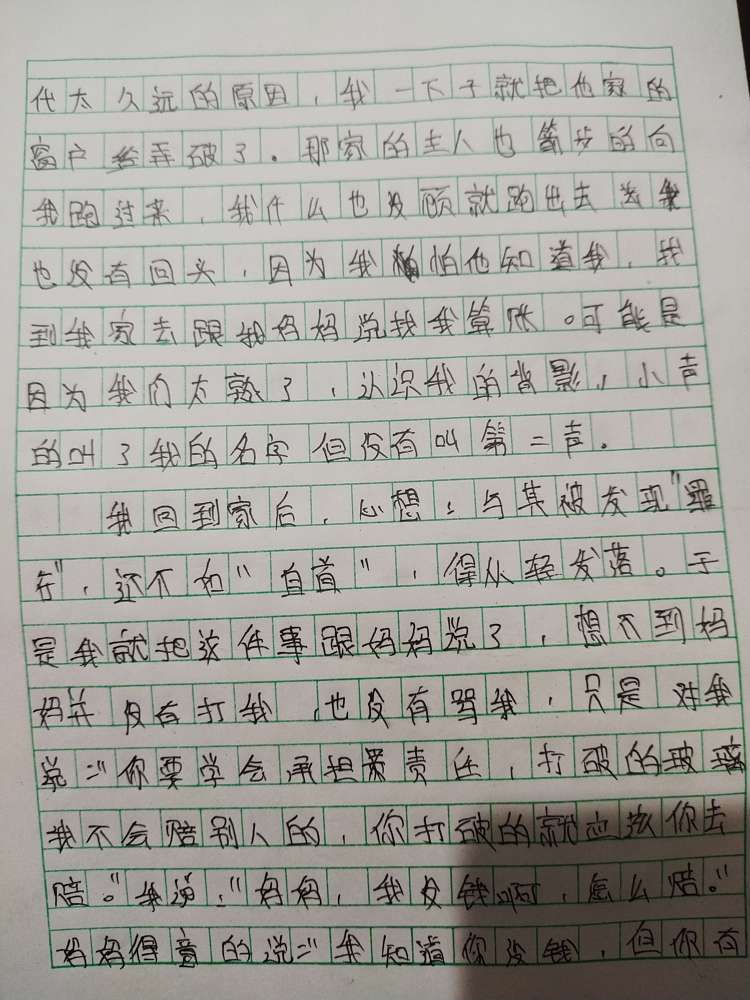 代太久远的原因，我一下子就把他家的
窗户给弄破了。那家的主人也箭步的向
我跑过来，我什么也没顾就跑出去
也没有回头，因为我怕他知道我，我
到我家去跟我妈妈说找我算账。可能是
因为我们太熟了，认识我的背影，小声
的叫了我的名字但没有叫第二声。
我回到家后，心想：与其被发现"罪
行"，还不和"自首"，得从轻发落。于
是我就把这件事跟妈妈说了，想不到妈
妈并没有打我，也没有骂我，只是对我
说："你要学会承担责任，打破的玻璃
我不会赔别人的，你打破的就应该你去
赔。"我说："妈妈，我没钱啊，怎么赔。"
妈妈得意的说："我知道你没钱，但你有